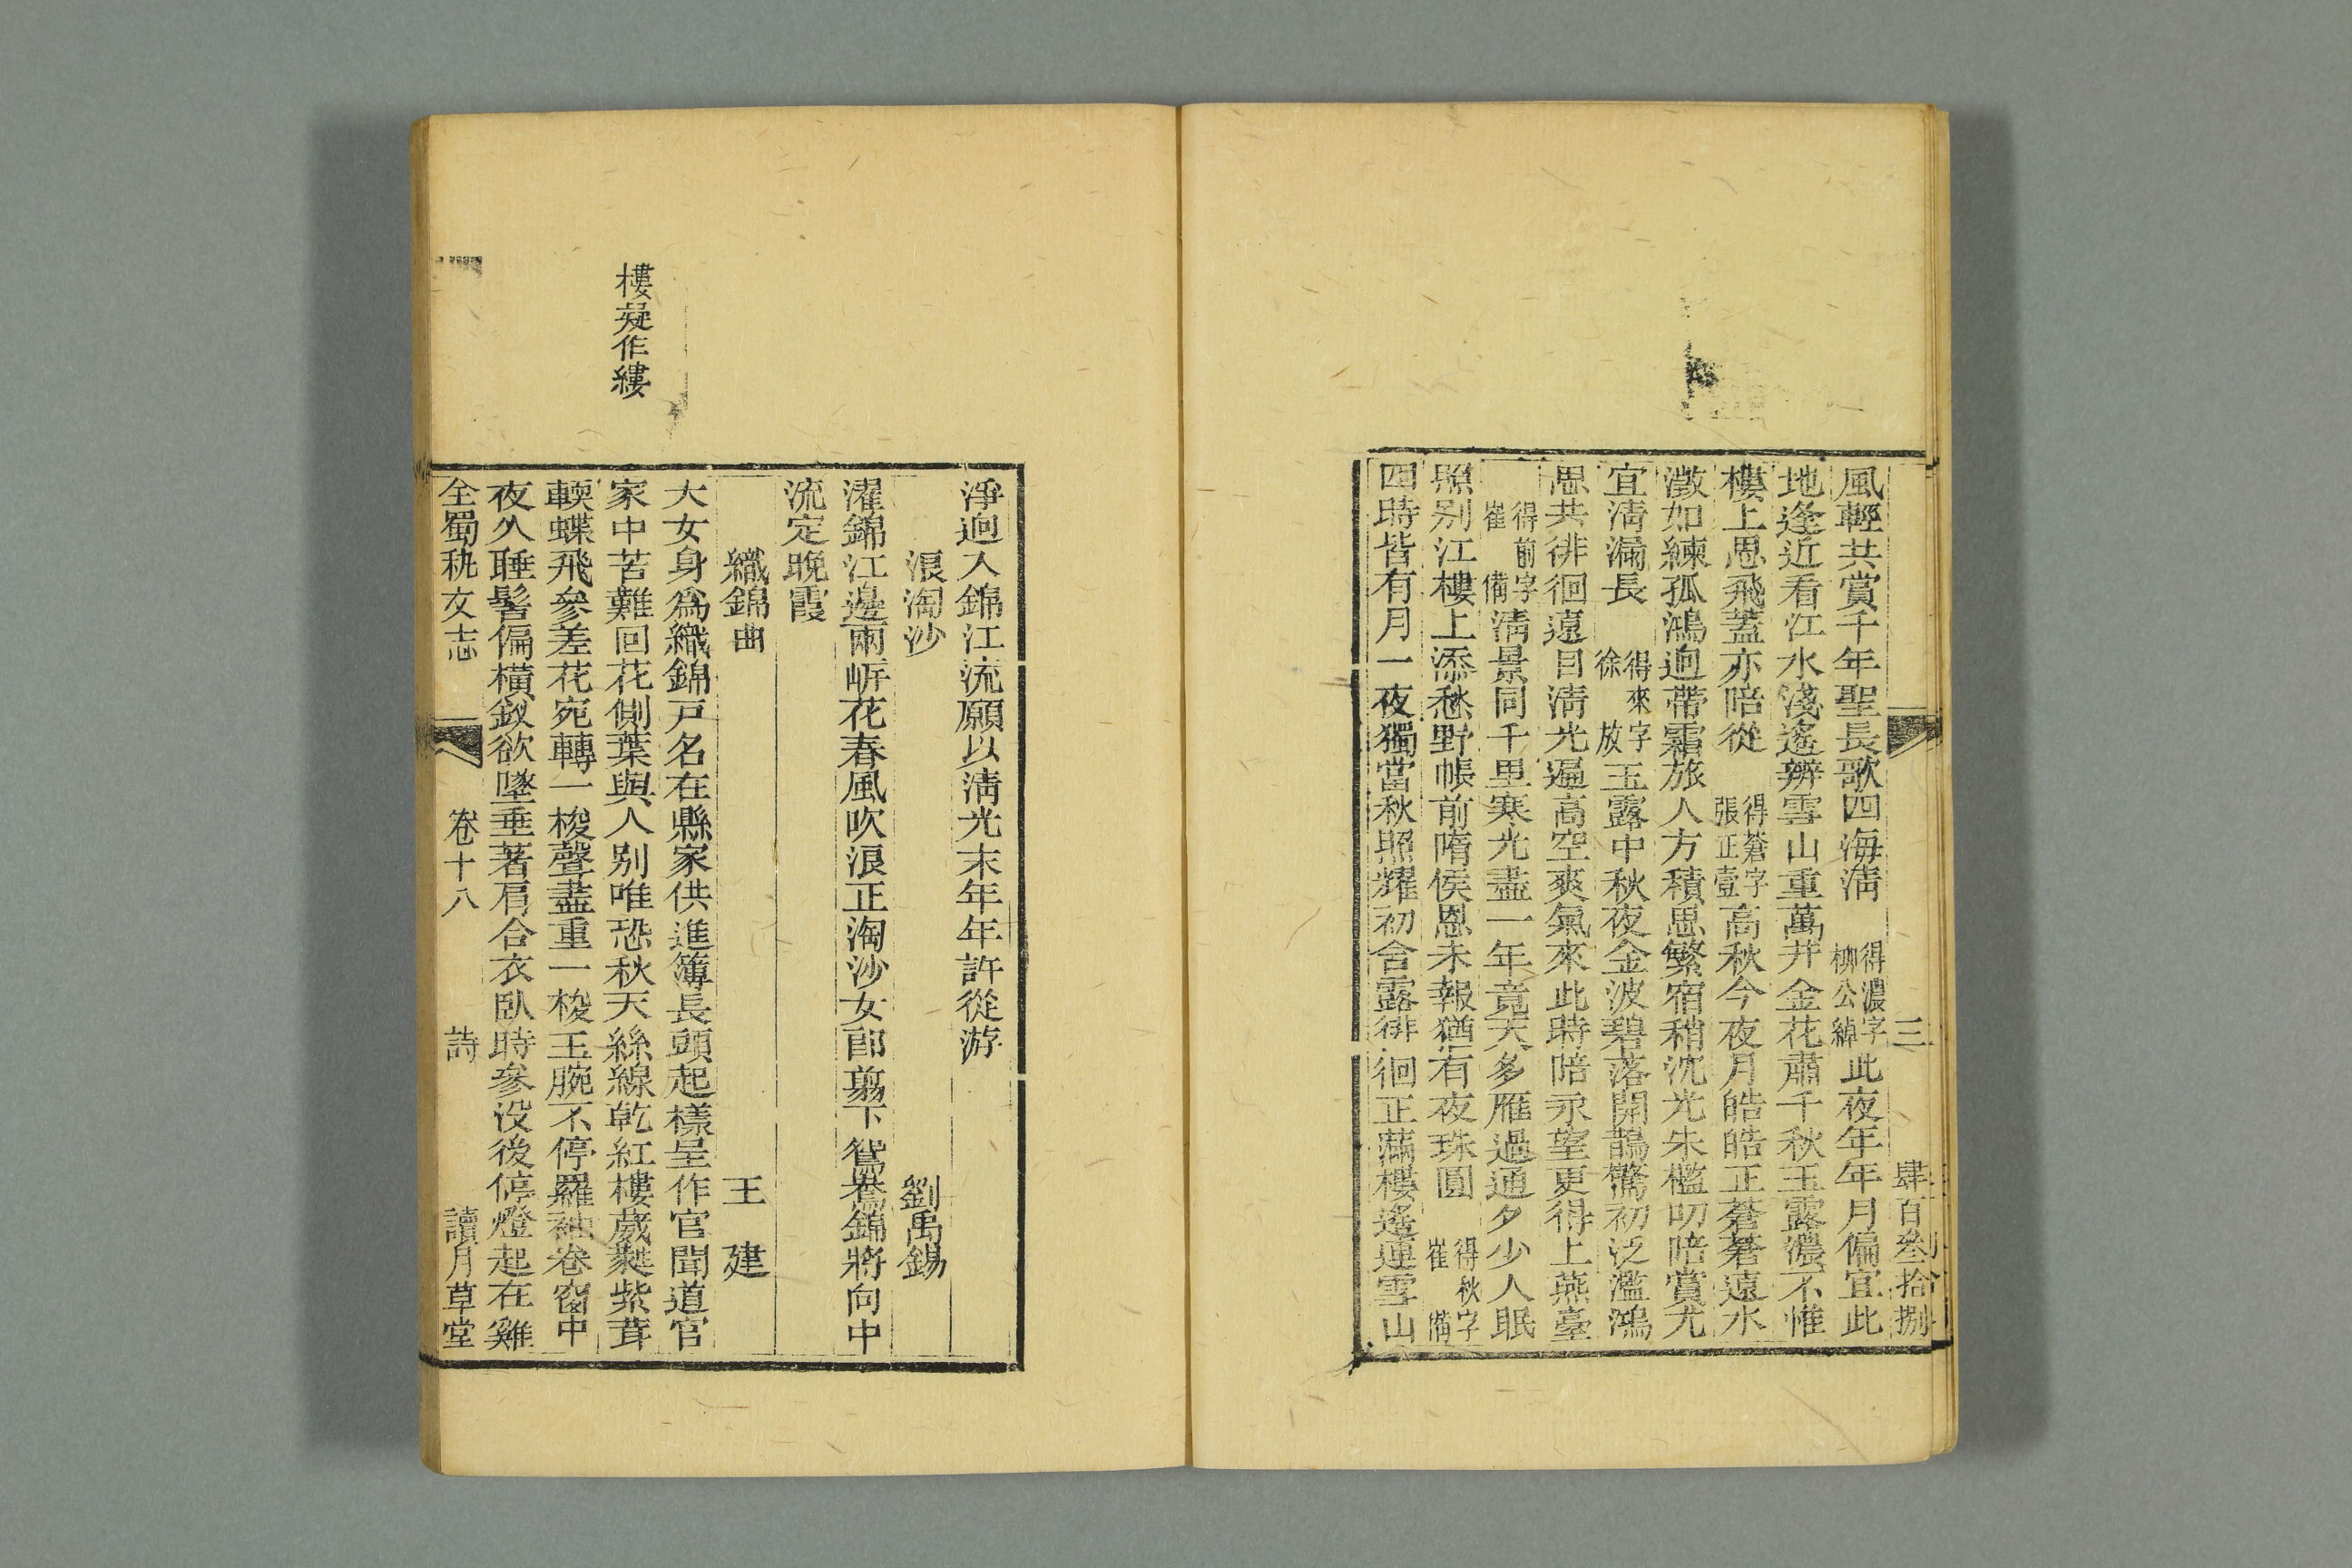 三 肆百叁拾捌
風輕共賞千年聖長歌四海淸 得濃字 柳公綽 此夜年年月偏宜此
地逢近看江水淺遙辨雪山重萬井金花肅千秋玉露濃不惟
樓上思飛蓋亦陪從 得蒼字 張正壹 高秋今夜月皓皓正蒼蒼遠水
澂如練孤鴻迥帶霜旅人方積思繁宿稍沈光朱檻叨陪賞尤
宜淸漏長 得來字 徐放 玉露中秋夜金波碧落開鵲驚初泛濫鴻
思共徘徊遠目淸光遍高空爽氣來此時陪永望更得上燕臺
得前字 崔備 淸景同千里寒光盡一年竟天多雁過通夕少人眠
照别江樓上添愁野帳前隋侯恩未報猶有夜珠圓 得秋字 崔備
四時皆有月一夜獨當秋照耀初含露徘徊正滿樓遙連雪山
淨迥入錦江流願以淸光末年年許從游
浪淘沙 劉禹錫
濯錦江邊兩岸花春風吹浪正淘沙女郎翦下鴛鴦錦將向中
流定晚霞
織錦曲 王建
大女身爲織錦戸名在縣家供進簿長頭起樣呈作官聞道官
家中苦難回花側葉與人别唯恐秋天絲線乾紅樓葳蕤紫茸
輭蝶飛參差花宛轉一梭聲盡重一梭玉腕不停羅袖卷窗中
夜久睡髻偏橫釵欲墜垂著肩合衣臥時參没後停燈起在雞
樓疑作縷
全蜀秇文志 卷十八 詩 讀月草堂